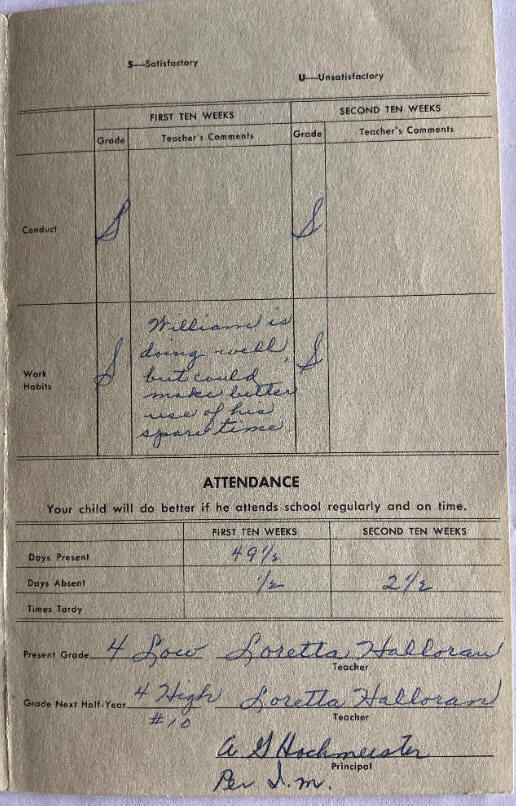 S—Satisfactory
U—Unsatisfactory
FIRST TEN WEEKS SECOND TEN WEEKS
Grade Teacher's Comments Grade Teacher's Comments
Conduct S S
Work Habits S S
William is
doing well,
but could
make better
use of his
spare time
ATTENDANCE
Your child will do better if he attends school regularly and on time.
FIRST TEN WEEKS SECOND TEN WEEKS
Days Present 49½
Days Absent ½ 2½
Times Tardy
Present Grade 4 Low Loretta Halloran
Teacher
Grade Next Half-Year 4 High Loretta Halloran
#10 Teacher
A G Hochmeister
Principal
Per I.m.